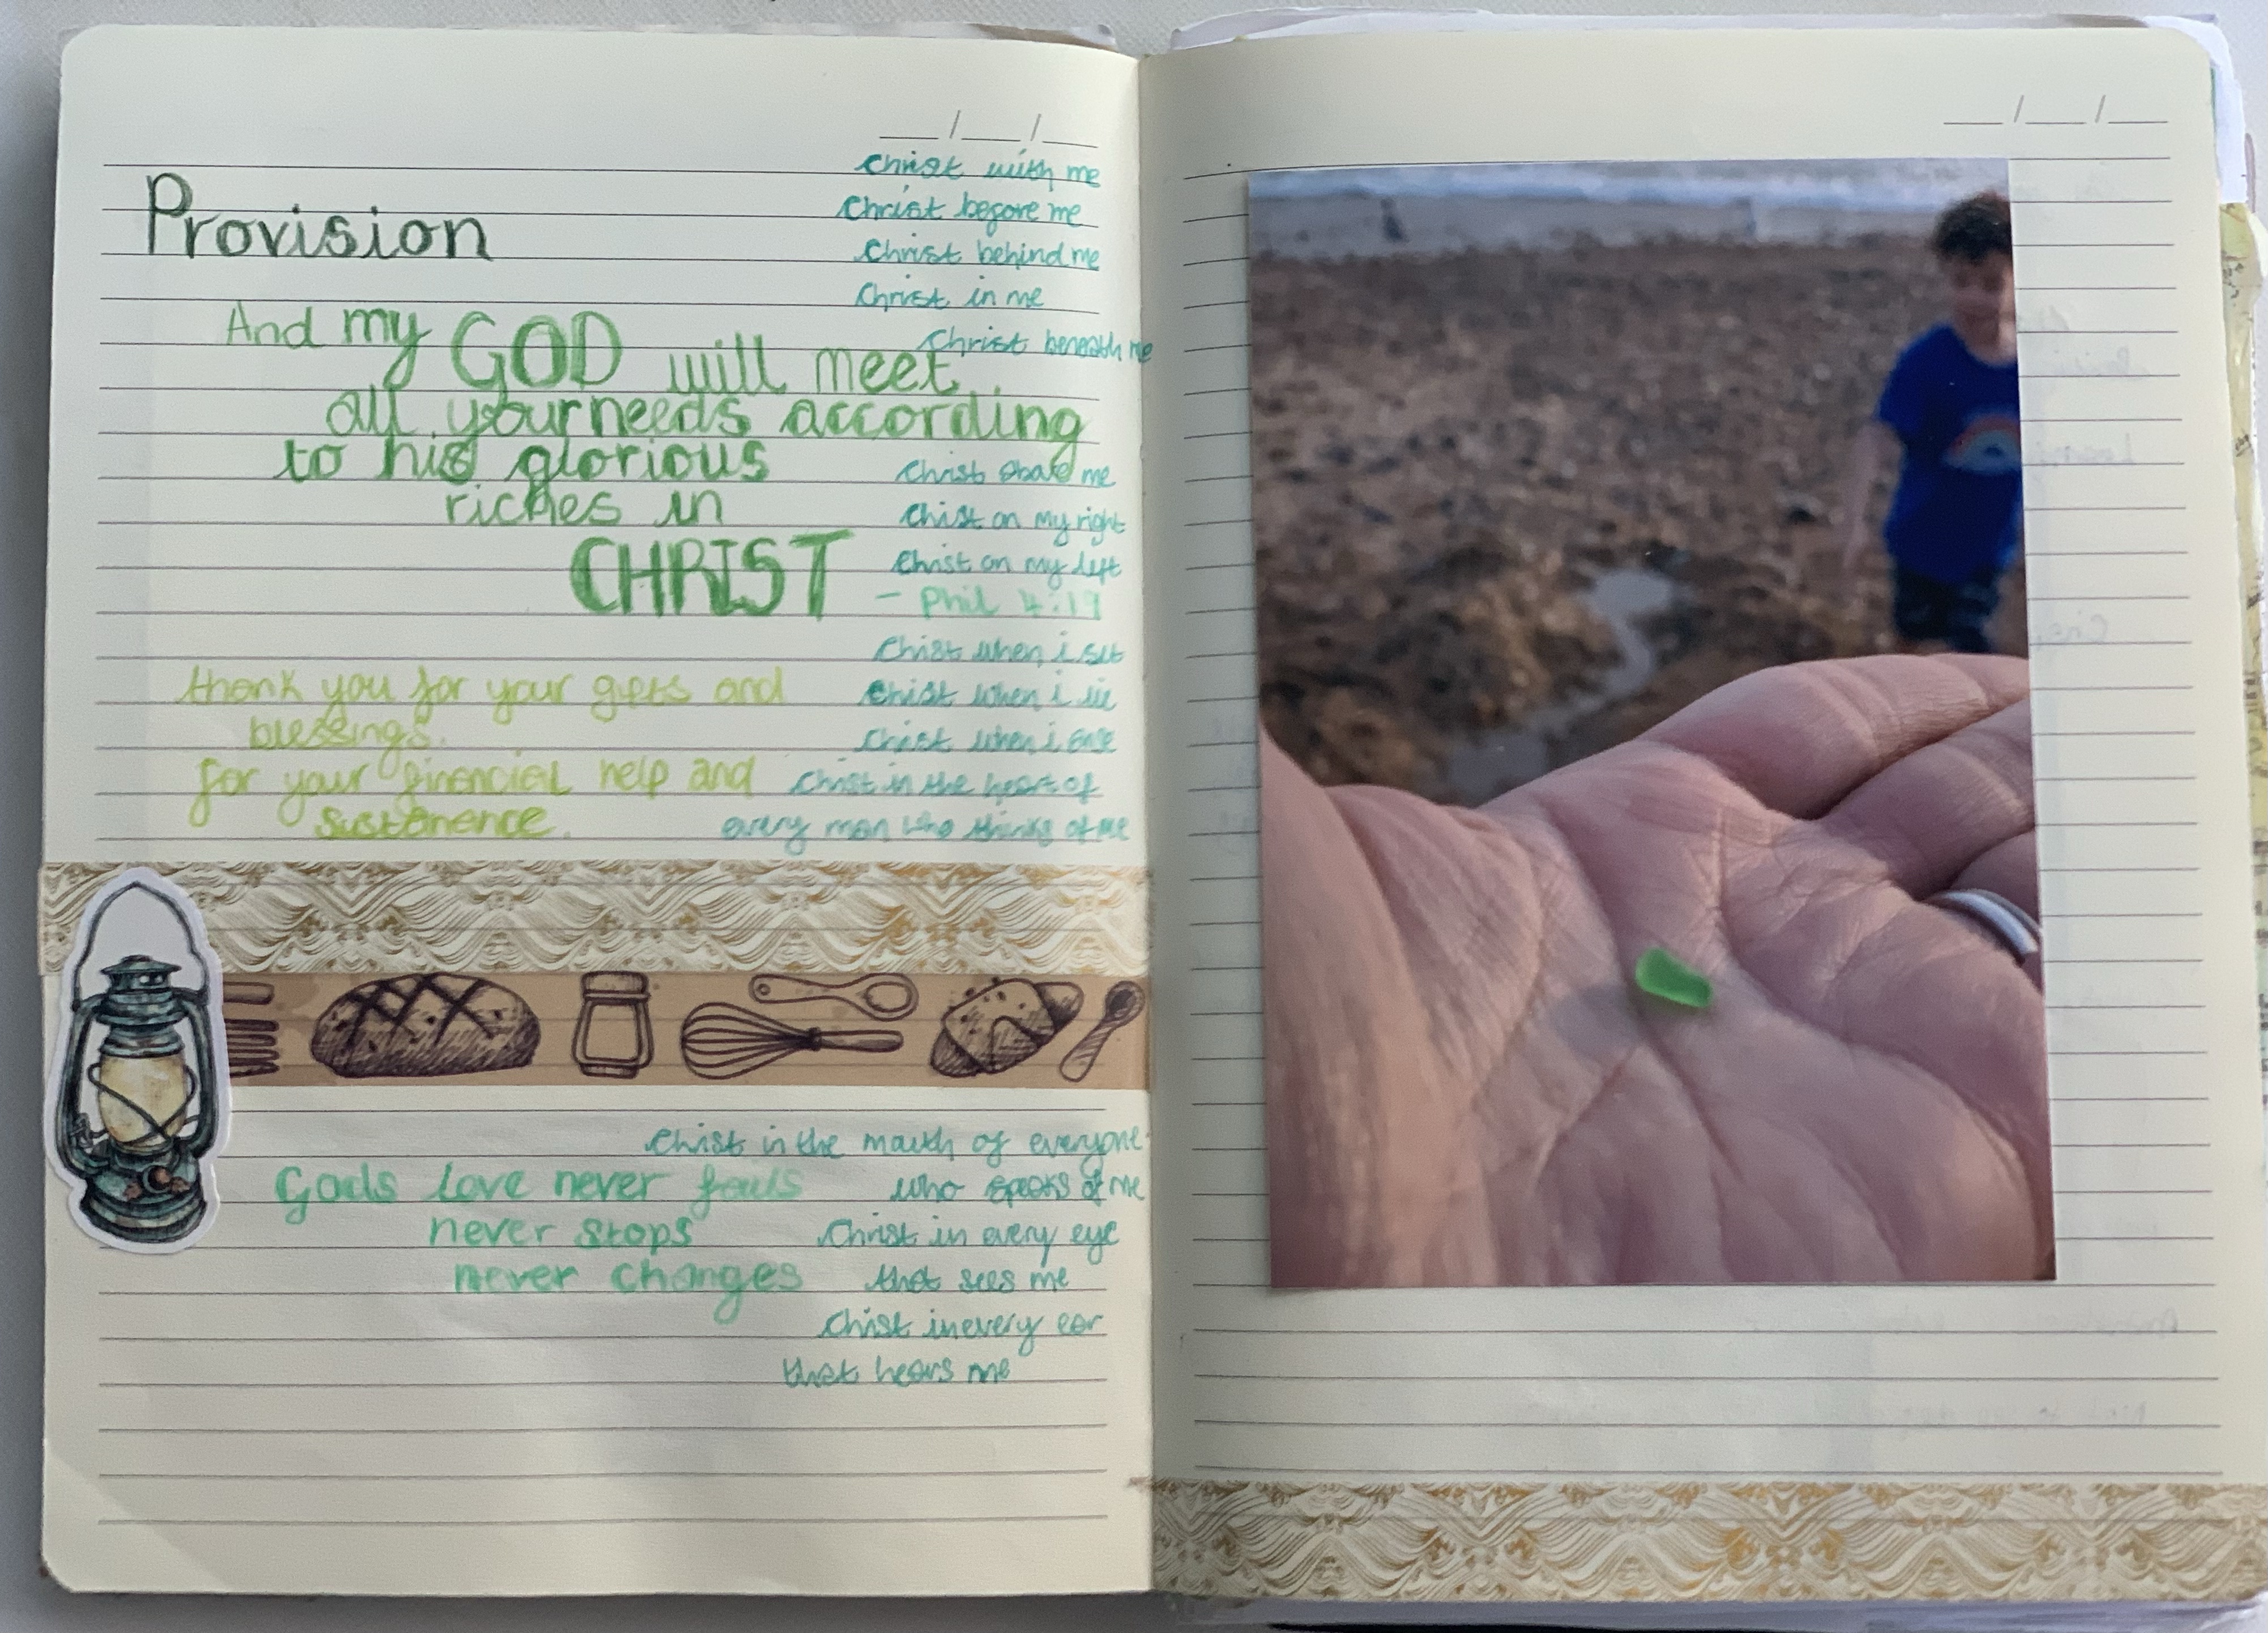 Provision
And my GOD will meet
all your needs according
to his glorious
riches in
CHRIST
- Phil 4:19
thank you for your gifts and
blessings.
for your financial help and
sustenence.
Gods love never fails
never stops
never changes
Christ with me
Christ before me
Christ behind me
Christ in me
Christ beneath me
Christ above me
Christ on my right
Christ on my left
Christ when i sit
Christ when i lie
Christ when i
Christ in the heart of
every man who thinks of me
Christ in the mouth of everyone
who speaks of me
Christ in every eye
that sees me
Christ in every ear
that hears me